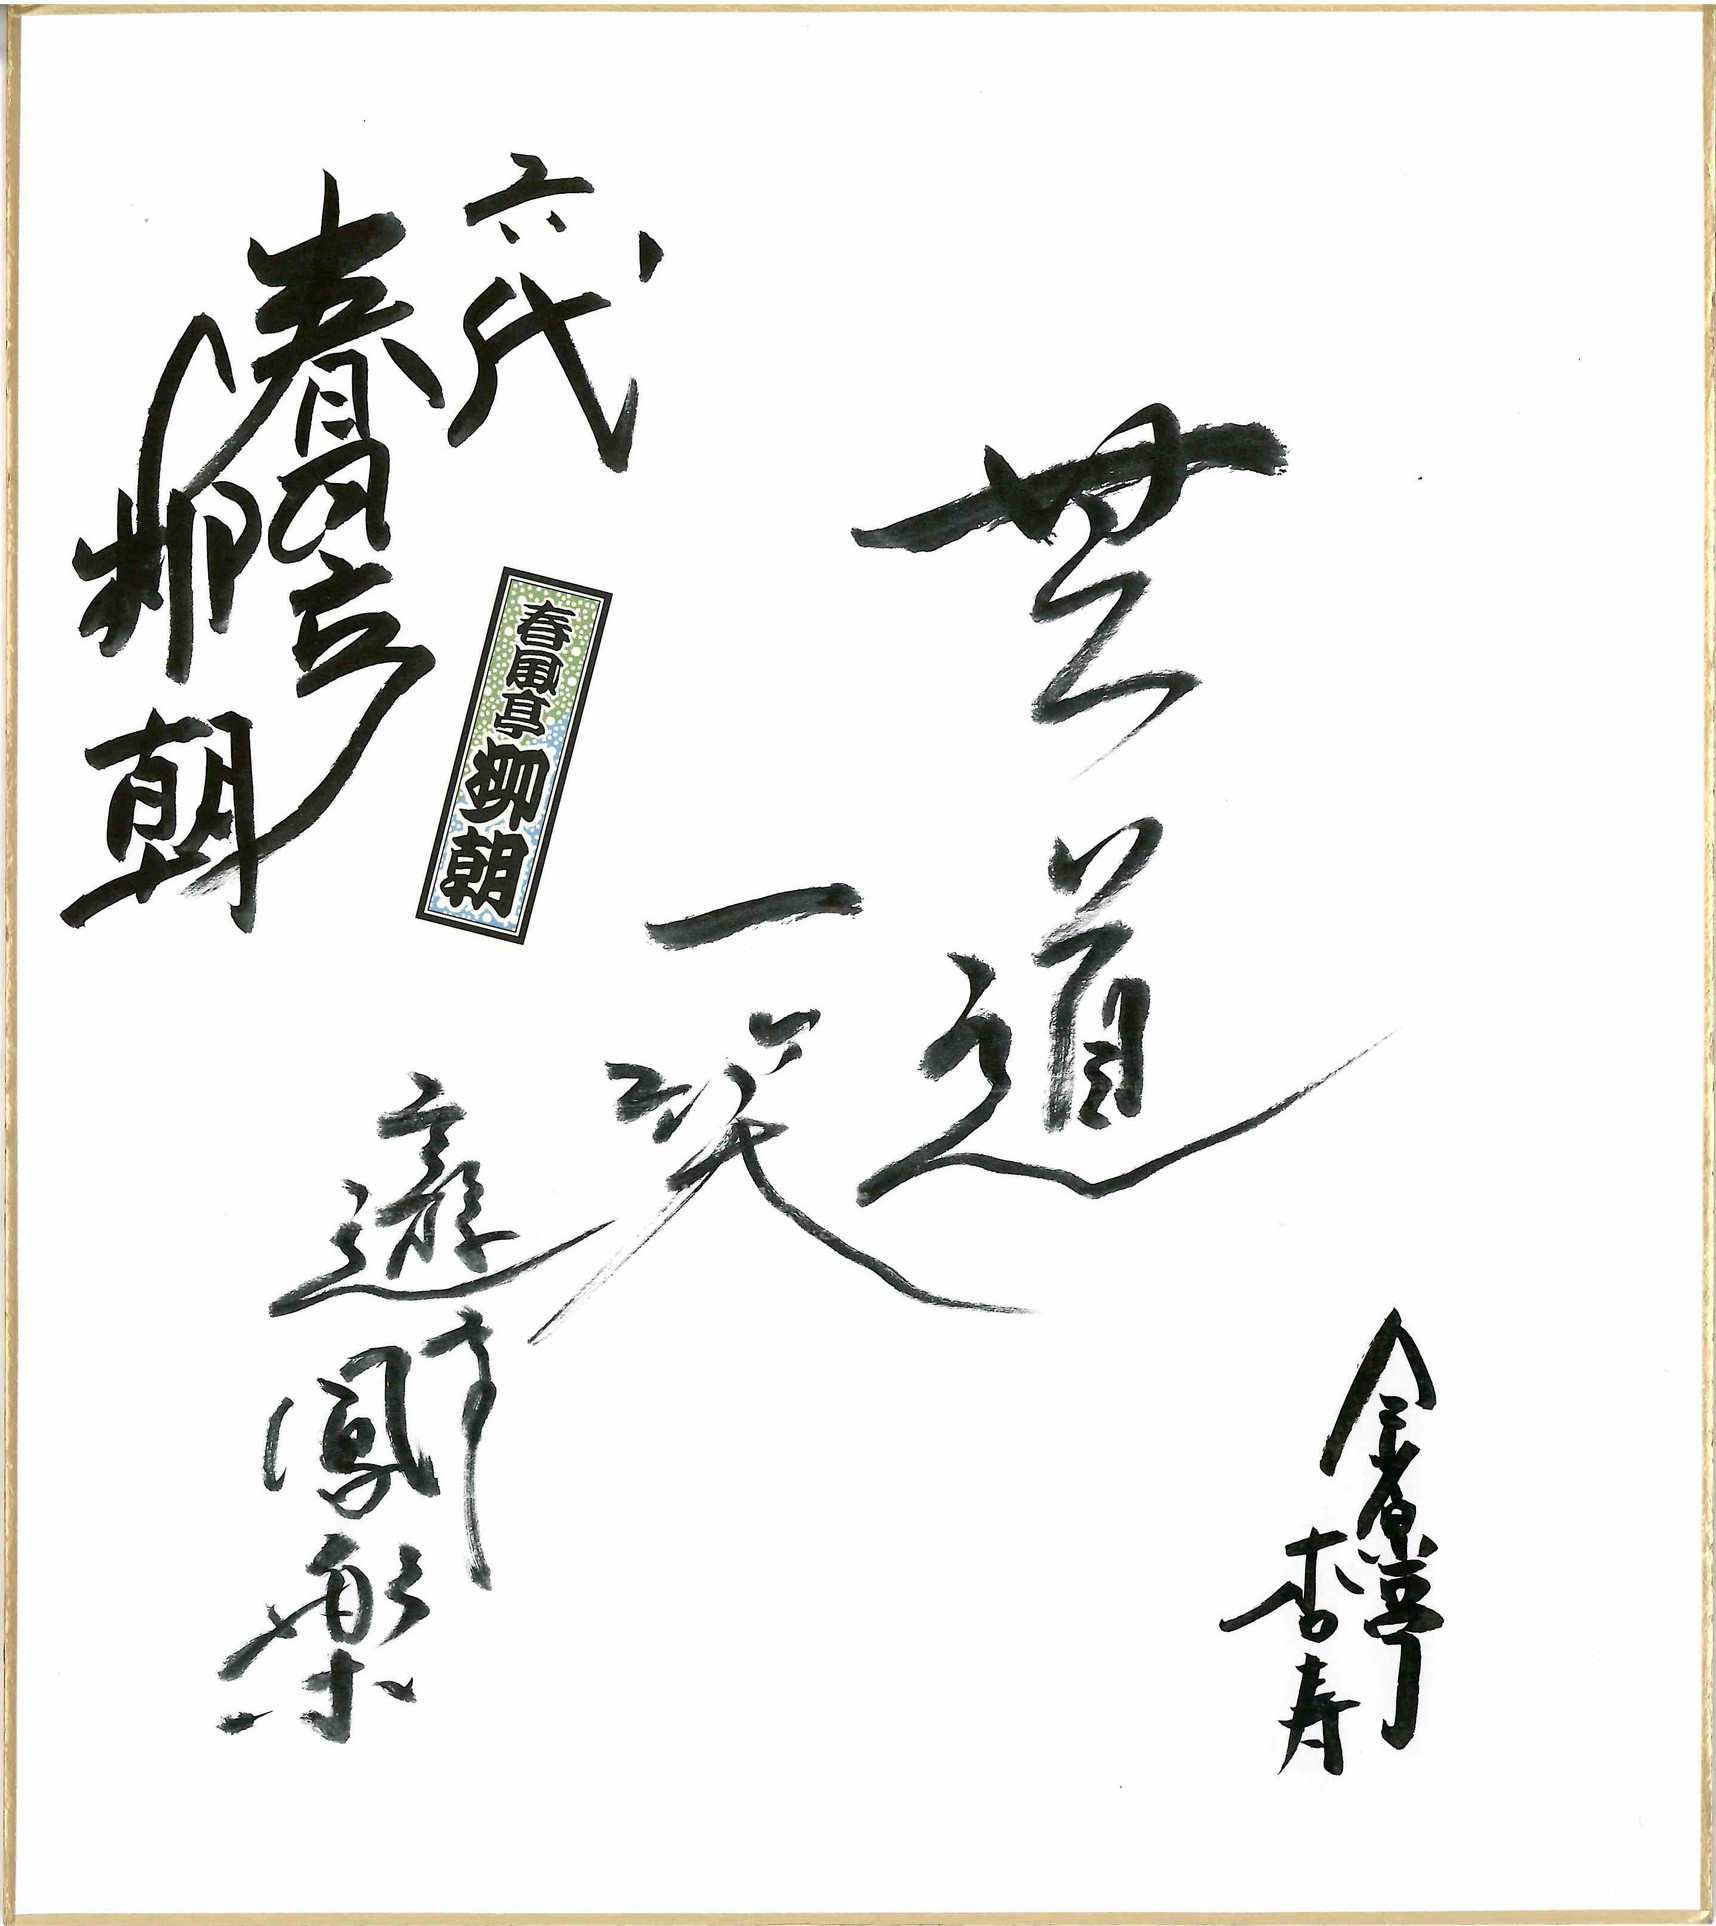 芸道
一笑
金原亭
杏寿
六代
春風亭
柳朝
春風亭柳朝
三遊亭
鳳楽